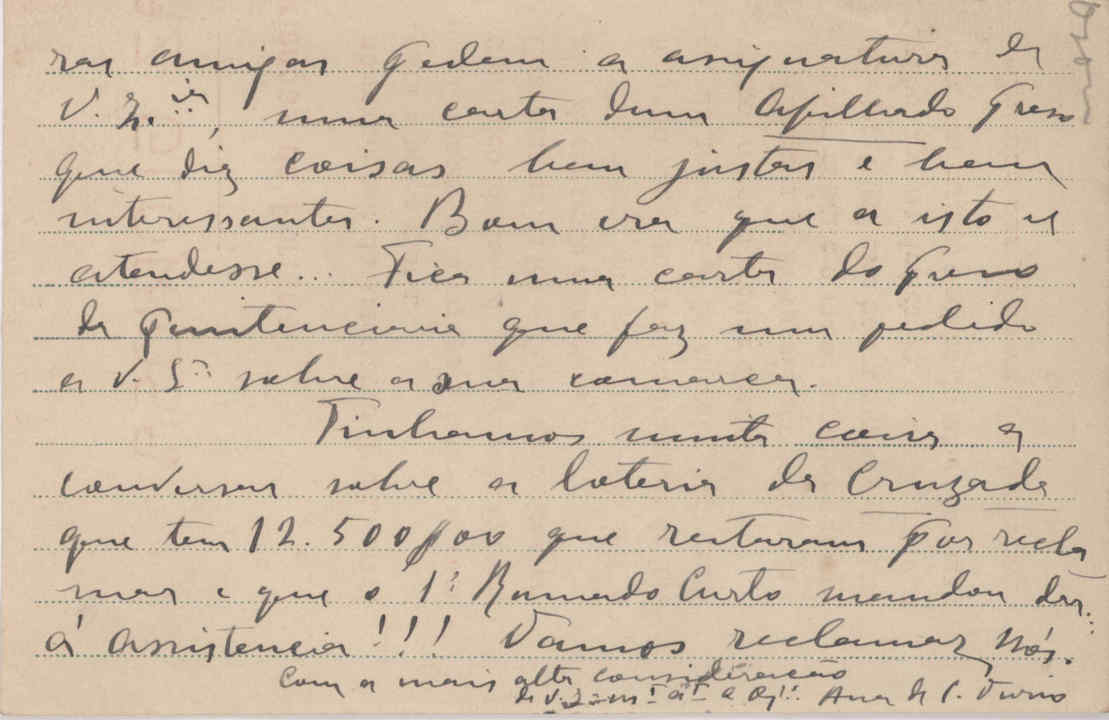 ras amigas pedem a assignatura de
V. Ex.cia, uma carta dum afilhado preso
que diz coisas bem justas e bem
interessantes. Bom era que a isto se
atendesse... Fica uma carta do preso
da penitenciaria que faz um pedido
a V. S.ª sobre a sua comarca.
Tinhamos muita coisa a
conversar sobre a loteria da Cruzada
que tem 12.500$00 que restaram por recla
mar e que o Ramada Curto mandou dar
á assistencia!!! Vamos reclamar nós.
Com a mais alta consideração
de V. Ana de C.